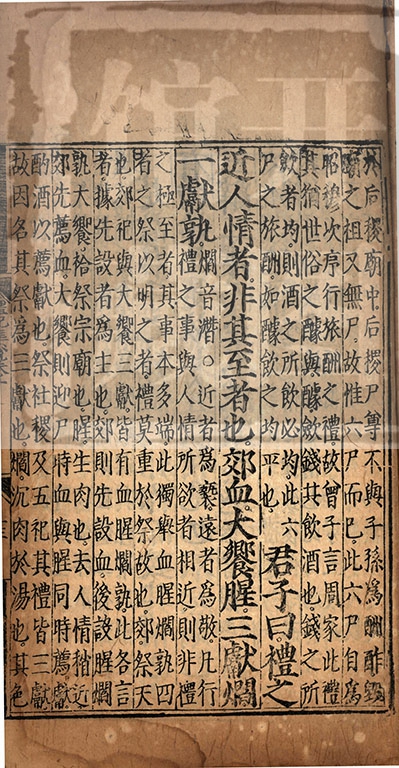 於后稷廟中后稷尸尊不與子孫爲酬酢毀
廟之祖又無尸故惟六尸而已此六尸自爲
昭穆次序行旅酬之禮故曾子言周家此禮
其猶世俗之醵與醵斂錢共飲酒也錢之所
斂者均則酒之所飲必均此六
尸之旅酬如醵飲之均平也
君子曰禮之
近人情者非其至者也郊血大饗腥三獻爓
一獻孰
爓音潛○近者爲褻遠者爲敬凡行
禮之事與人情所欲者相近則非禮
之極至者其事本多端此獨舉血腥爓孰四
者之祭以明之者禮莫重於祭故也郊祭天
也郊祀與大饗三獻皆有血腥爓孰此各言
者據先設者爲主也郊則先設血後設腥爓
孰大饗祫祭宗廟也腥生肉也去人情稍近
郊先薦血大饗則迎尸時血與腥同時薦獻
酌酒以薦獻也祭社稷及五祀其禮皆三獻
故因名其祭爲三獻也爓沉肉於湯也其色